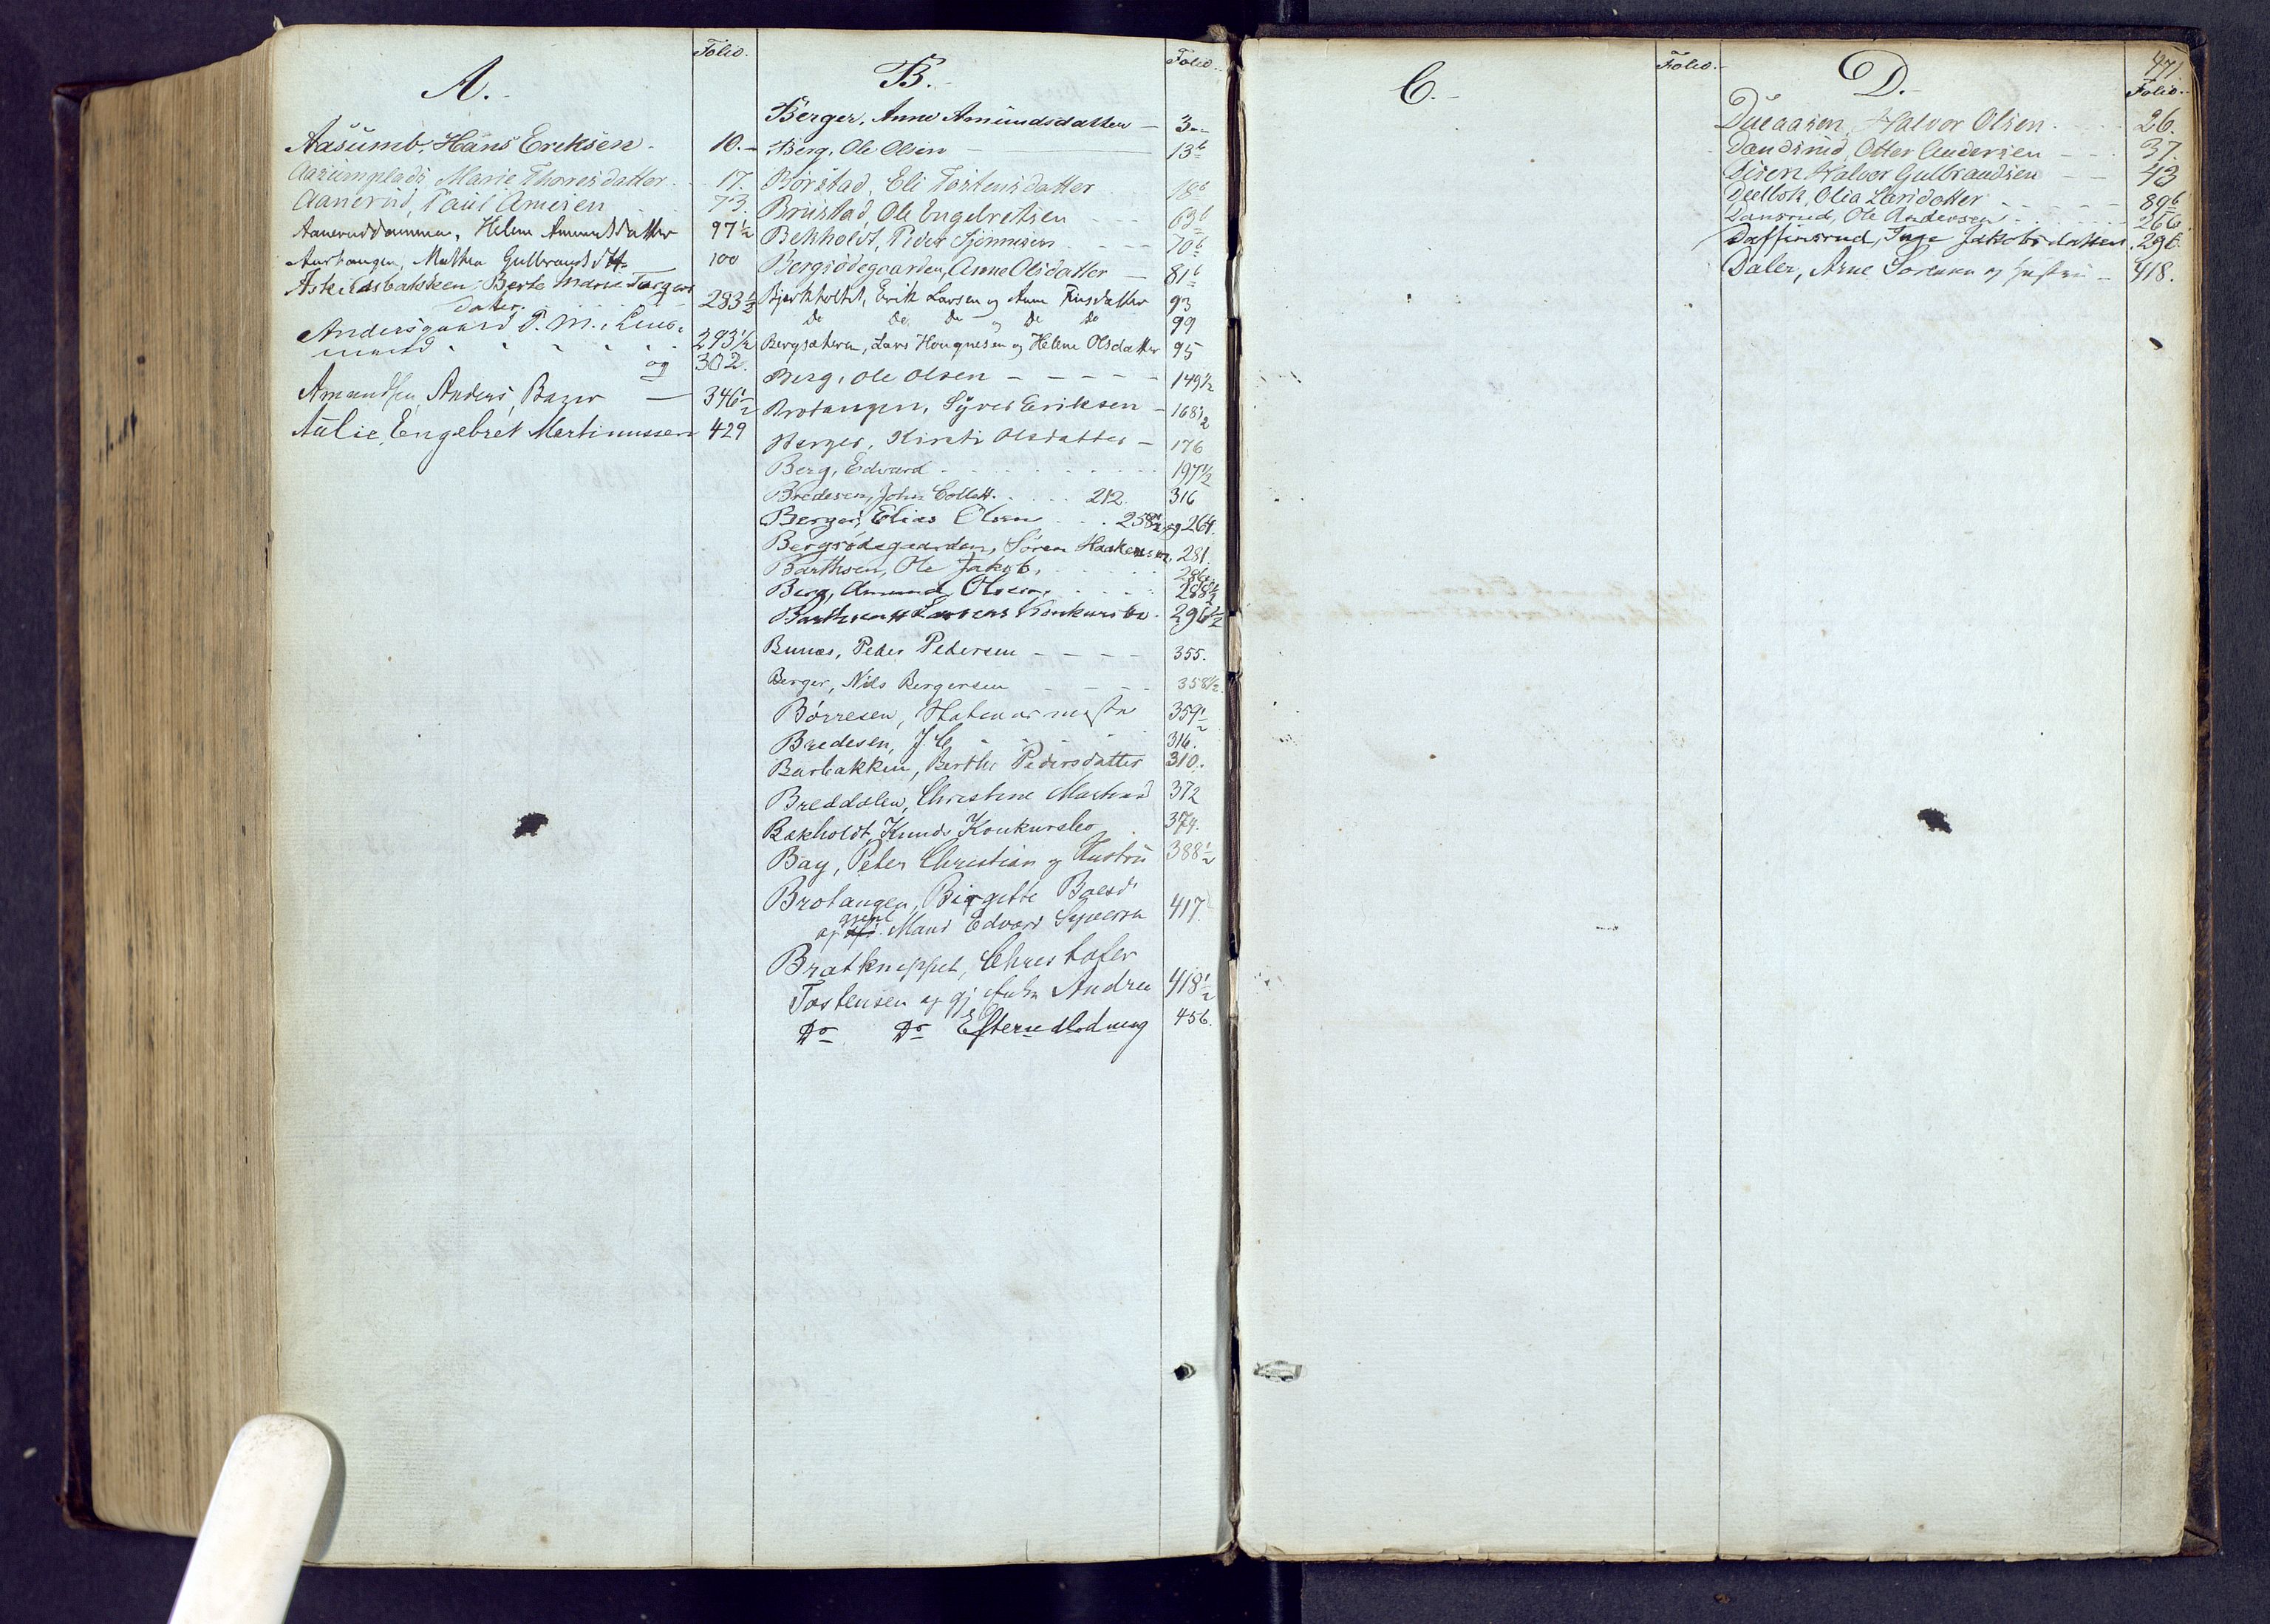 A.
Folio.
Aasumb. Hans Eriksen. 10.
Aasumplads, Marie Thoresdatter. 17.
Aanerud, Paul Arnesen 73.
Aaneruddammen, Helene Amundsdatter 97½
Aurhaugen, Mathea Gulbrandsdtt. 100
Askildsbakken, Berte Marie Torgers
datter. 283½
Andersgaard P. M. i Lius-
mund 293½
og 302.
Amundsen, Anders, Bager 346½
Aulie, Engebret Martinussen 429
B.
Folio.
Berger, Anne Amundsdatter 3
Berg, Ole Olsen 13b
Börstad, Eli Tostensdatter 18b
Brustad, Ole Engebretsen 63b
Bekholdt, Peder Sjönnesen 70b
Bergsödegaarden, Anne Olsdatter 81b
Bjerkholdt, Erik Larsen og Anne Finsdatter 93
Do Do Do og Do Do 99
Bergsæteren, Lars Haagnesen og Helene Olsdatter 95
Berg, Ole Olsen 149½
Brotangen, Syver Eriksen 168½
Berger, Kirsti Olsdatter 176
Berg, Edvard 197½
Bredesen, John Collett. 212. 316
Berger, Elias Olsen 258½ og 264.
Bergsödegaarden, Sören Haakensen, 281.
Barthsen, Ole Jakob, 286.
Berg, Amund Olsen, 288½
Barthsen & Larsens Konkursbo. 296½
Bunæs, Peder Pedersen 355.
Berger, Nils Bergersen 358½.
Börresen, Stationsmester 359½
Bredesen, J. C. 316.
Barbakken, Berthe Pedersdatter 310.
Breddalen, Christine Mathisd 372
Bekholdt, Knuds Konkursbo 374.
Bay, Peter Christian og Hustru 388½
Brotangen, Birgitte Boesd.
og gjenl Mand Edvard Syversen 417.
Bratkneppet, Christofer
Tostensen og gj. Enke Andrea 418½
Do Do Efterudlodning 456.
C.
Folio.
D.
471.
Folio.
Dueaasen, Halvor Olsen. 26.
Dandsrud, Otter Andersen 37.
Disen Halvor Gulbrandsen 43
Deelbek, Olia Larsdatter 89b
Dansrud, Ole Andersen 266.
Daffinsrud, Inge Jakobsdatter. 296.
Daler, Arne Sörensen og Hustru 418.